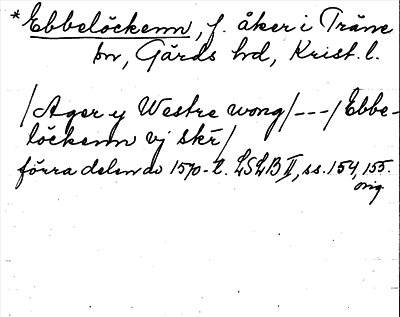 *Ebbelöckenn, f. åker i Träne
sn, Gärds hd, Krist. l.
/Ager y Westre wong/---/Ebbe-
löckenn vj skr/
förra delen av 1570-t. LSLB II, ss. 154, 155.
orig.